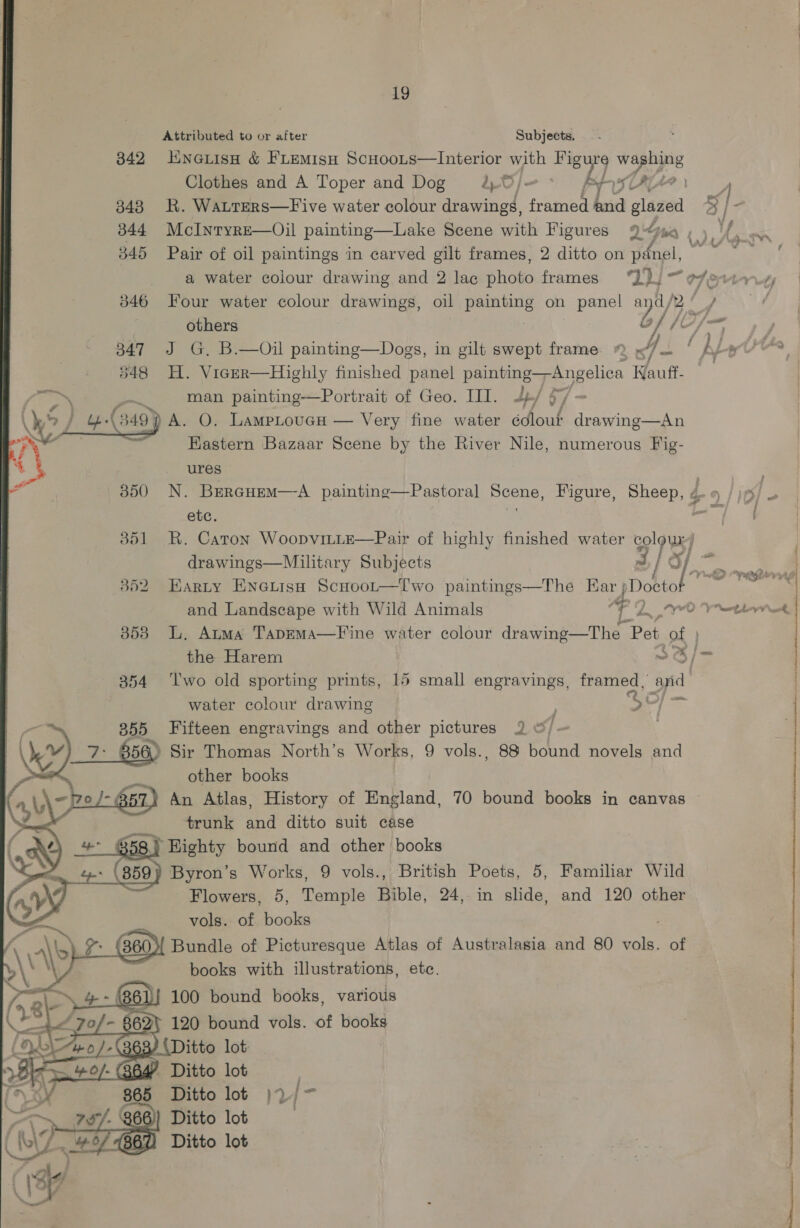 19
Attributed to or after Subjects.
342 English & Flemish Schools—Interior with Figure washing
Clothes and A Toper and Dog 40/-
343 R. Watters—Five water colour drawings, framed and glazed 5/-
344 McIntyre—Oil painting—Lake Scene with Figures
345 Pair of oil paintings in carved gilt frames, 2 ditto on panel,
a water colour drawing and 2 lac photo frames
346 Four water colour drawings, oil painting on panel and 2
others
347 J G. B.—Oil painting—Dogs, in gilt swept frame
348 H. Viger—Highly finished panel painting—Angelica Kauff-
man painting—Portrait of Geo. III.
4- 349 A. O. Lamplough — Very fine water colour drawing—An
Eastern Bazaar Scene by the River Nile, numerous Fig-
ures
350 N. Berghem—A painting—Pastoral Scene, Figure, Sheep,
etc.
351 R. Caton Woodville—Pair of highly finished water colour
drawings—Military Subjects
352 Early English School—Two paintings—The Ear Doctor
and Landscape with Wild Animals
353 L. Alma Tadema—Fine water colour drawing—The Pet of
the Harem
354 Two old sporting prints, 15 small engravings, framed, and
water colour drawing
355 Fifteen engravings and other pictures
7- 356 Sir Thomas North's Works, 9 vols., 88 bound novels and
other books
70/- 357 An Atlas, History of England, 70 bound books in canvas
trunk and ditto suit case
4- 358 Eighty bound and other books
4- 359 Byron's Works, 9 vols., British Poets, 5, Familiar Wild
Flowers, 5, Temple Bible, 24, in slide, and 120 other
vols. of books
360 Bundle of Picturesque Atlas of Australasia and 80 vols. of
books with illustrations, etc.
4- 361 100 bound books, various
70/- 362 120 bound vols. of books
40/- 363 Ditto lot
40/- 364 Ditto lot
365 Ditto lot 12/-
75/- 366 Ditto lot
367 Ditto lot